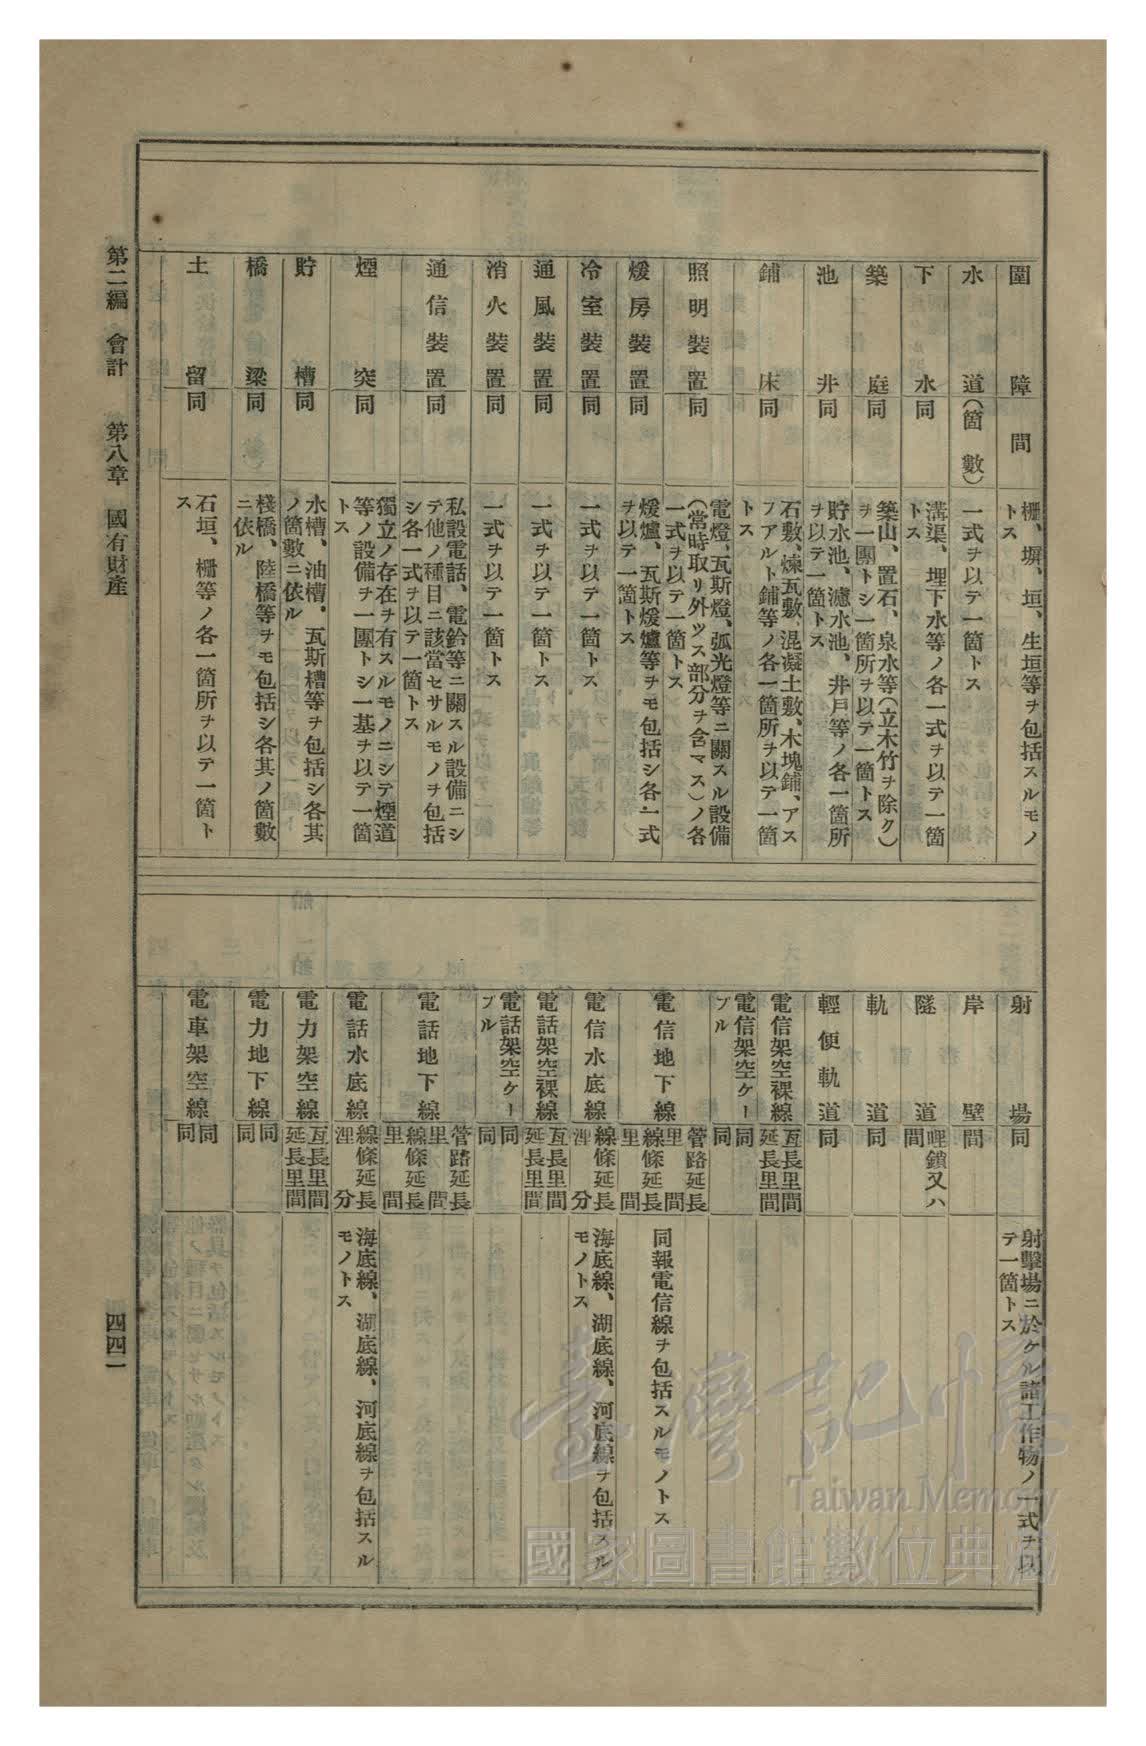 圍障
間
柵、塀、垣、生垣等ヲ包括スルモノ
トス
水道
(箇數)
一式ヲ以テ一箇トス
下水
同
溝渠、埋下水等ノ各一式ヲ以テ一箇
トス
築庭
同
築山、置石、泉水等(立木竹ヲ除ク)
ヲ一團トシ一箇所ヲ以テ一箇トス
池井
同
貯水池、濾水池、井戸等ノ各一箇所
ヲ以テ一箇トス
鋪床
同
石敷、煉瓦敷、混凝土敷、木塊鋪、アス
フアルト鋪等ノ各一箇所ヲ以テ一箇
トス
照明裝置
同
電燈、瓦斯燈、弧光燈等ニ關スル設備
(常時取リ外ツス部分ヲ含マス)ノ各
一式ヲ以テ一箇トス
煖房裝置
同
煖爐、瓦斯煖爐等ヲモ包括シ各一式
ヲ以テ一箇トス
冷室裝置
同
一式ヲ以テ一箇トス
通風裝置
同
一式ヲ以テ一箇トス
消火裝置
同
一式ヲ以テ一箇トス
通信裝置
同
私設電話、電鈴等ニ關スル設備ニシ
テ他ノ種目ニ該當セサルモノヲ包括
シ各一式ヲ以テ一箇トス
煙突
同
獨立ノ存在ヲ有スルモノニシテ煙道
等ノ設備ヲ一團トシ一基ヲ以テ一箇
トス
貯槽
同
水槽、油槽、瓦斯槽等ヲ包括シ各其
ノ箇數ニ依ル
橋梁
同
棧橋、陸橋等ヲモ包括シ各其ノ箇數
ニ依ル
土留
同
石垣、柵等ノ各一箇所ヲ以テ一箇ト
ス
射場
同
射擊場ニ於ケル諸工作物ノ一式ヲ以
テ一箇トス
岸壁
間
隧道
哩鎖又ハ
間
軌道
同
輕便軌道
同
電信架空裸線
亙長里間
延長里間
電信架空ケー
ブル
同
同
電信地下線
管路延長
里間
線條延長
里間
同報電信線ヲ包括スルモノトス
電信水底線
線條延長
浬分
海底線、湖底線、河底線ヲ包括スル
モノトス
電話架空裸線
亙長里間
延長里間
電話架空ケー
ブル
同
同
電話地下線
管路延長
里間
線條延長
里間
電話水底線
線條延長
浬分
海底線、湖底線、河底線ヲ包括スル
モノトス
電力架空線
亙長里間
延長里間
電力地下線
同
同
電車架空線
同
同
第二編 會計 第八章 國有財產
四四一
臺灣記憶
Taiwan Memory
國家圖書館數位典藏